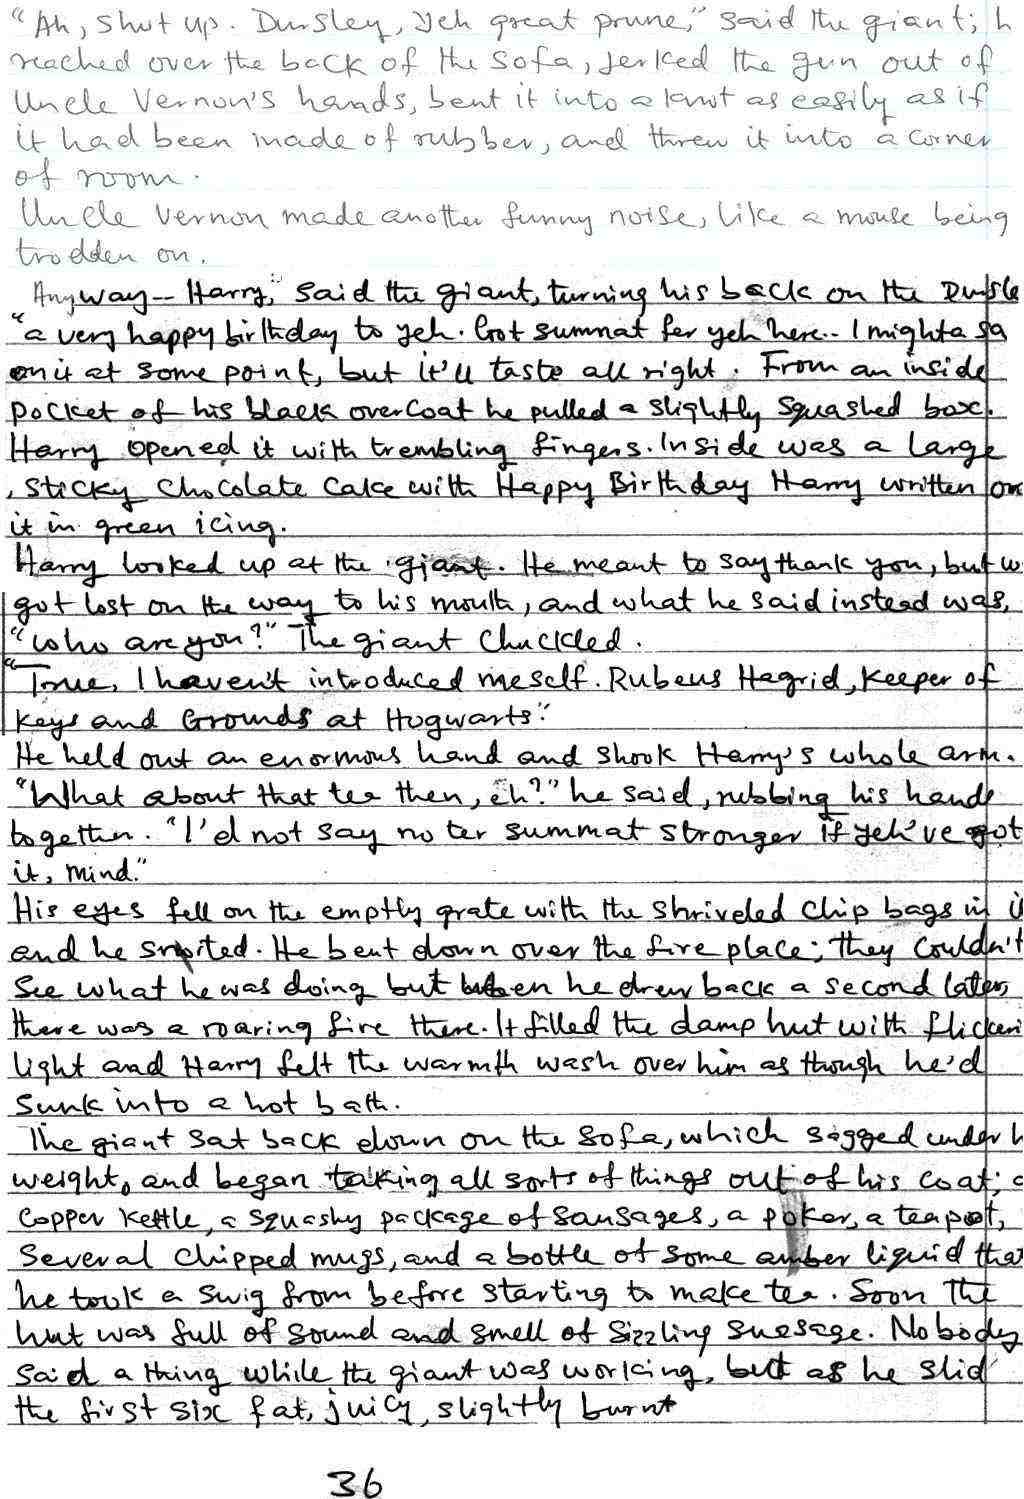 "Ah, shut up. Dursley, yeh great prune," said the giant; h
reached over the back of the sofa, jerked the gun out of
Uncle Vernon's hands, bent it into a knot as easily as if
it had been made of rubber, and threw it into a corner
of room.
Uncle Vernon made another funny noise, like a mouse being
trodden on.
Anyway-- Harry," said the giant, turning his back on the Dursle
"a very happy birthday to yeh. Got summat fer yeh here.. I mighta sa
on it at some point, but it'll taste all right. From an inside
pocket of his black overcoat he pulled a slightly squashed box.
Harry opened it with trembling fingers. Inside was a large
, sticky chocolate cake with Happy Birthday Harry written on
it in green icing.
Harry looked up at the giant. He meant to say thank you, but w
got lost on the way to his mouth, and what he said instead was,
"who are you?" The giant chuckled.
"True, I haven't introduced meself. Rubeus Hagrid, Keeper of
Keys and Grounds at Hogwarts."
He held out an enormous hand and shook Harry's whole arm.
"What about that tea then, eh?" he said, rubbing his hands
together. "I'd not say no ter summat stronger if yeh've got
it, mind."
His eyes fell on the emptly grate with the shriveled chip bags in i
and he snorted. He bent down over the fire place; they couldn't
see what he was doing but when he drew back a second later,
there was a roaring fire there. It filled the damp hut with flickeri
light and Harry felt the warmth wash over him as though he'd
sunk into a hot bath.
The giant sat back down on the sofa, which sagged under h
weight, and began taking all sorts of things out of his coat; a
copper kettle, a squashy package of sausages, a poker, a teapot,
several chipped mugs, and a bottle of some amber liquid that
he took a swig from before starting to make tea. Soon the
hut was full of sound and smell of sizzling susage. Nobody
said a thing while the giant was working, but as he slid
the first six fat, juicy, slightly burnt
36